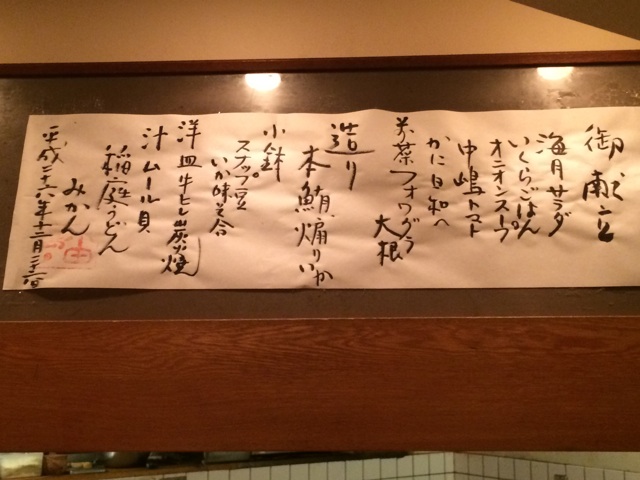 御献立
海月サラダ
いくらごはん
オニオンスープ
中嶋トマト
かに日和へ
若菜フォワグラ
大根
造り
本鮪 煽りいか
小鉢
スナップ豆
いか味噌合
洋皿 牛ヒレ炭火焼
汁 ムール貝
稲庭うどん
みかん
平成二十六年十二月二十二日